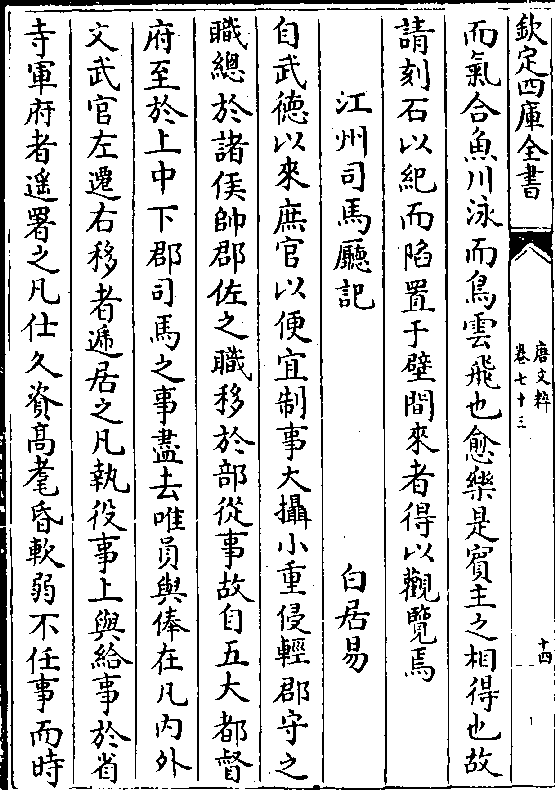 欽定四庫全書
唐文粹
卷七十三
十四
而氣合魚川泳而鳥雲飛也愈樂是賓主之相得也故
請刻石以紀而陷置于壁間來者得以觀覽焉
江州司馬廳記 白居易
自武德以來庶官以便宜制事大攝小重侵輕郡守之
職總於諸侯帥郡佐之職移於部從事故自五大都督
府至於上中下郡司馬之事盡去唯員與俸在凡內外
文武官左遷右移者遞居之凡執役事上與給事於省
寺軍府者遥署之凡仕久資高耄昏軟弱不任事而時